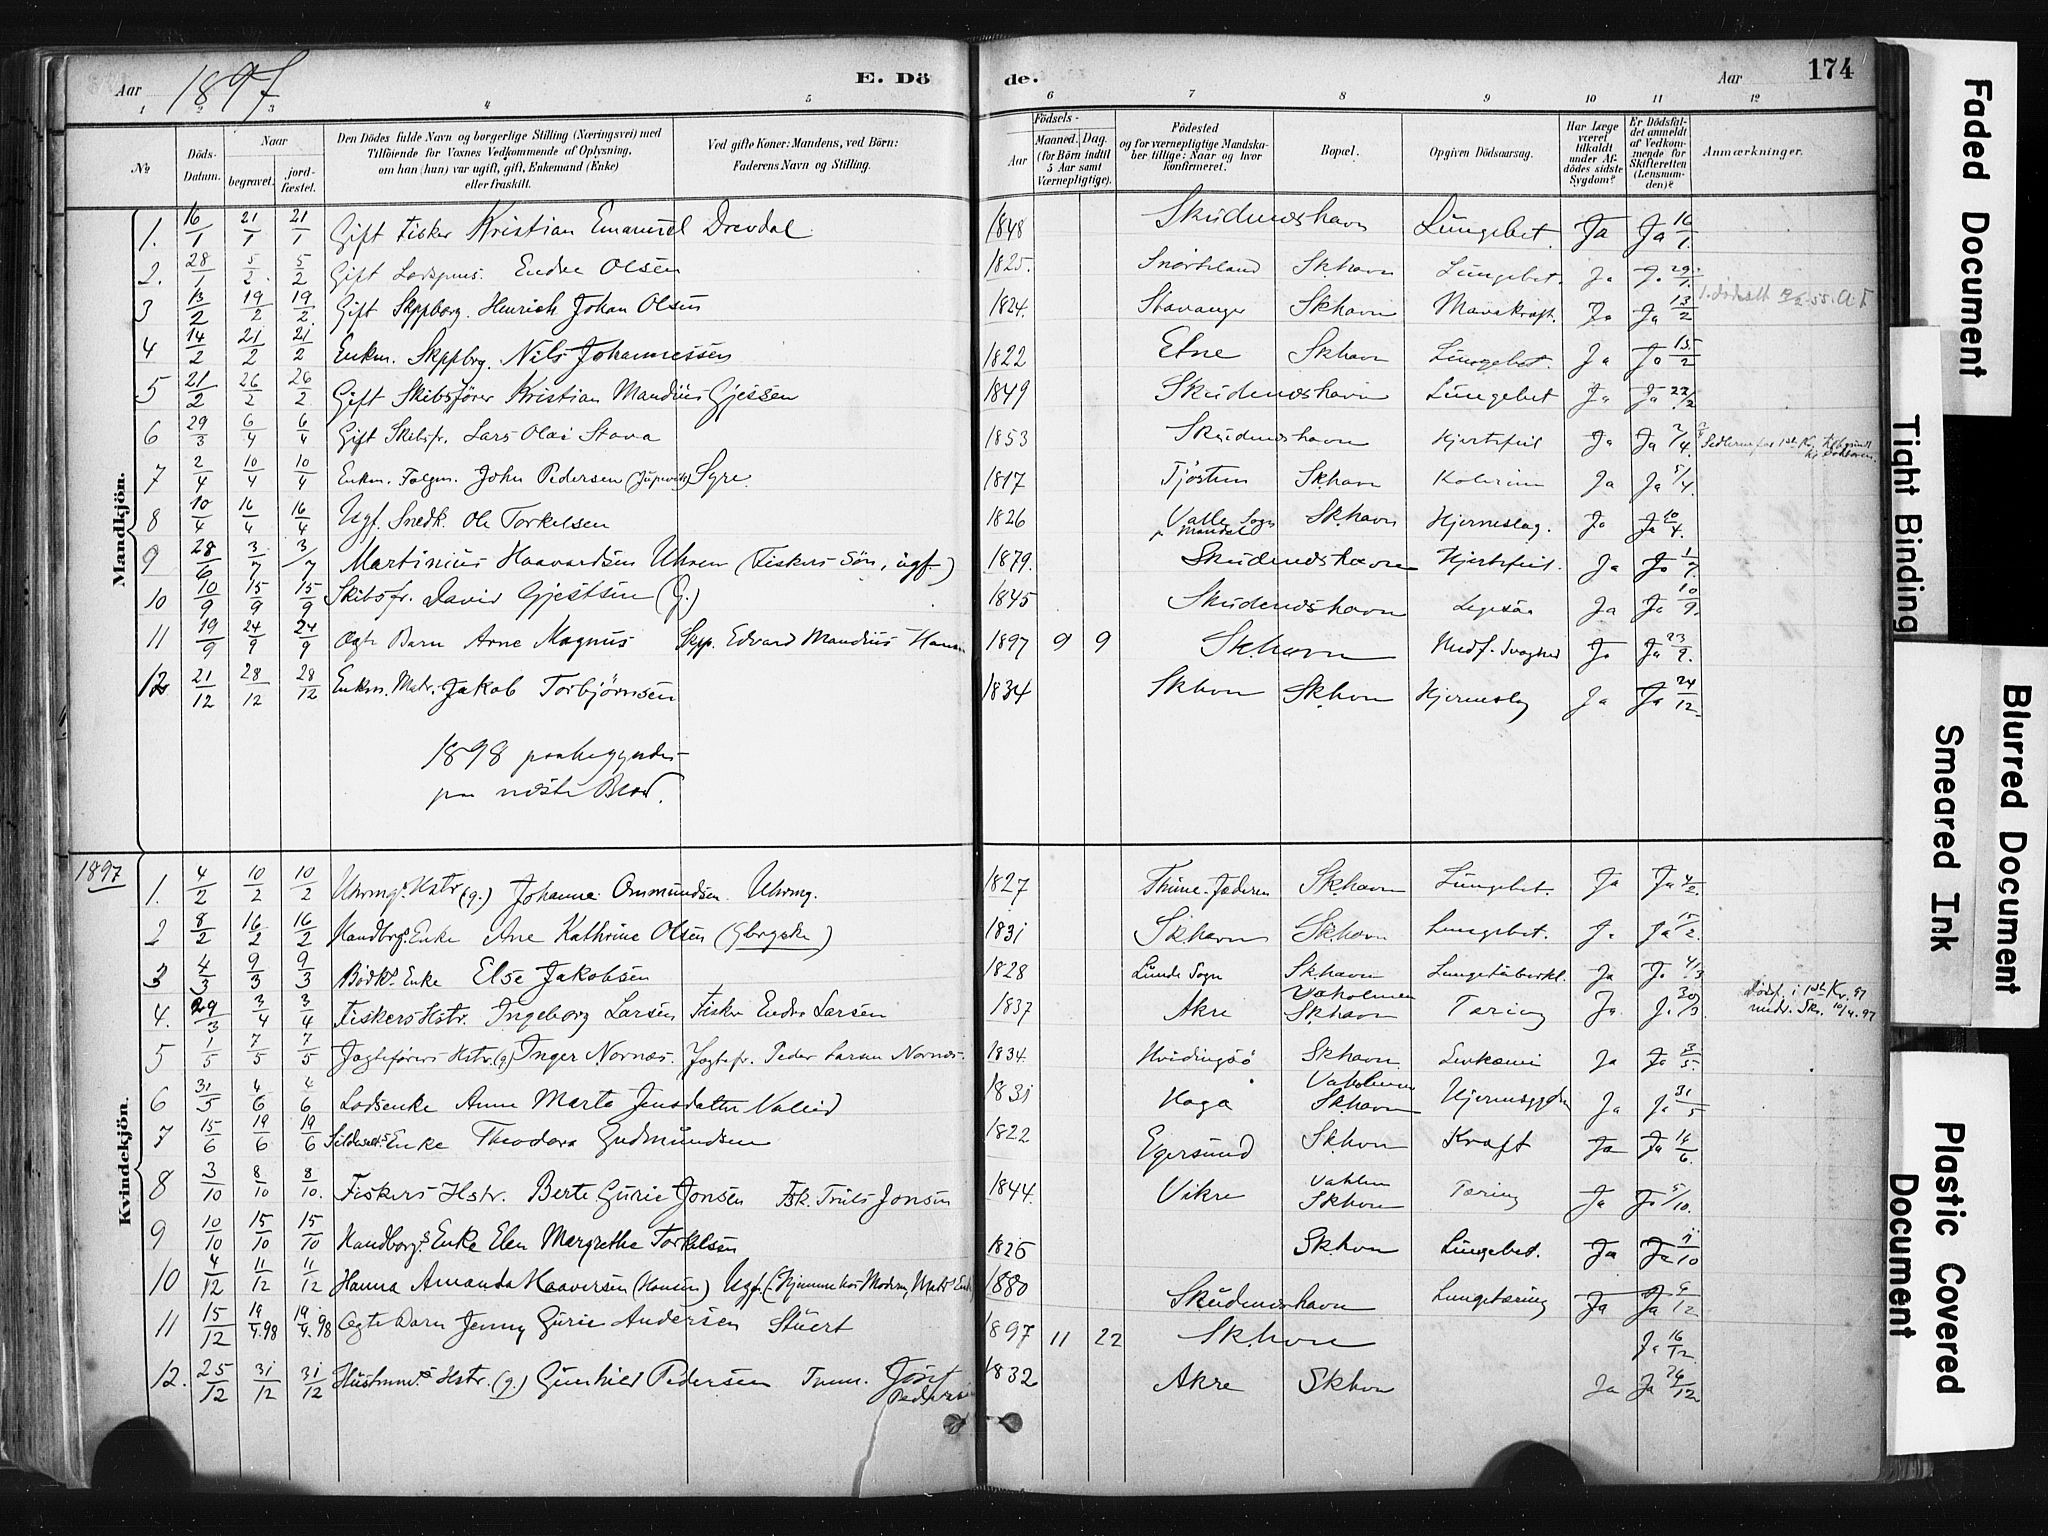 Aar 1897 E. Dö de. Aar 174
1 2 3 4 5 6 7 8 9 10 11 12
№
Döds-Datum.
Naar
begravet.
jordfæstet.
Den Dödes fulde Navn og borgerlige Stilling (Næringsvei) med
Tilföiende for Voxnes Vedkommende af Oplysning,
om han (hun) var ugift, gift, Enkemand (Enke)
eller fraskilt.
Ved gifte Koner: Mandens, ved Börn:
Faderens Navn og Stilling.
Födsels-
Aar
Maaned. Dag.
(for Börn indtil
5 Aar samt
Værnepligtige).
Födested
og for værnepligtige Mandska-
ber tillige: Naar og hvor
konfirmeret.
Bopæl.
Opgiven Dödsaarsag.
Har Læge
været
tilkaldt
under Af-
dödes sidste
Sygdom?
Er Dödsfal-
det anmeldt
af Vedkom-
mende for
Skifteretten
(Lensman-
den)?
Anmærkninger.
Mandkjön.
1. 16/1 21/1 21/1 Gift Fisker Kristian Emanuel Drevdal 1848 Skudeneshavn Lungebet. Ja Ja 16/1.
2. 28/1 5/2. 5/2 Gift Endre Olsen 1825. Sk.havn Lungebet. Ja J. 29/1.
3 13/2 19/2 19/2 Gift Skppborg. Henrich Johan Olsen 1824. Stavanger Skhavn Mavekræft. Ja Ja 13/2
4 14/2 21/2 21/2 Enkm. Skppbrg. Nils Johannessen 1822 Etne Skhavn Lungebet. Ja Ja 15/2
5 21/2 26/2 26/2 Gift Skibsfører Kristian Mandius Gjessen 1849 Skudeneshavn Lungebet Ja Ja 22/2
6 29/3 6/4 6/4 Gift Skibsfr. Lars Olai Stava 1853 Skudeneshavn Hjertefeil Ja Ja 2/4.
7 2/4 10/4 10/4 Enkm. John Pedersen Syre. 1817 Sk.havn Ja Ja 5/4.
8 10/4 16/4 16/4 Ugf. Snedk. Ole Torkelsen 1826 Valle Sogn Mandal Sk.havn Hjerneslag. Ja Ja 10/4.
9 28/6 3/7 3/7 Martinius Haavardsen Uhren (Fiskers Søn, ugf.) 1879. Skudeneshavn Hjertefeil. Ja Ja 1/7.
10 10/9 15/9 15/9 Skibsfr. David Gjestsen (g.) 1845 Skudeneshavn Ja Ja 10/9.
11 19/9 24/9 24/9 Ægte Barn Arne Magnus Skpp. Edvard Mandius Hansen 1897 9 9 Sk.havn Medf. Svaghed Ja Ja 23/9.
12 21/12 28/12 28/12 Enkm. Matr. Jakob Torbjørnsen 1834 Skhvn Skhvn Hjerneslag Ja Ja 24/12.
1898 paabegyndes
paa næste Blad.
1897
Kvindekjön.
1. 4/2 10/2 10/2 Uhrmg.s Hstr (g.) Johanna Ommundsen Uhrmg. 1827 Thime. Jæderen Sk.havn Lungebet. Ja Ja 4/2.
2 8/2 16/2 16/2 Handbrgs. Enke Ane Kathrine Olsen 1831 Sk.havn Sk.havn Lungebet. Ja Ja /2.
3 4/3 9/3 9/3 Bødk.s Enke Else Jakobsen 1828 Lunde Sogn Sk.havn Lungetuberkl. Ja Ja 4/3
4. 29/3 3/4 3/4 Fiskers Hstr. Ingeborg Larsen Fisker Endre Larsen 1837 Akre Vaholmen Sk.havn Tæring Ja. J. 30/3 Dødsf. i 1ste Kv. 97
10/4. 97
5 1/5 7/5 7/5 Jagtefører Hstr. (g) Inger Nornæs. Jagtefr. Peder Larsen Nornæs. 1834. Hvidingsø Skhavn Leukæmi Ja Ja 3/5.
6 31/5 4/6 4/6 Lodsenke Anne Marta Jensdatter Valeid 1831 Haga Vaholmen Sk.havn Hjernesygdom Ja Ja 31/5
7 15/6 19/6 19/6 Enke Theodora Gudmundsen 1822 Egersund Sk.hvn Kræft Ja Ja 16/6.
8 3/10 8/10 8/10. Fiskers Hstr. Berte Gurie Jonsen Fsk. Truls Jonsen 1844. Vikre Vahlm Skhvn Tæring Ja Ja 5/10.
9 10/10 15/10 15/10 Handborg.s Enke Elen Margrethe Torkelsen 1826 Sk.hvn Lungebet. Ja Ja 11/10
10 4/12 11/12 11/12 Hanna Amanda Haaversen (Hansen) Ugf. (Hjemme hos Moderen, Matr.s Enke) 1880 Skudeneshavn Lungetæring Ja Ja 6/12
11 15/12 19/4.98 19/4.98 Ægte Barn Jenny Gurie Andersen Stuert 1897 11 22 Sk.hvn Ja 16/12.
12. 25/12 31/12 31/12 Husmm.s Hstr. (g.) Gunhild Pedersen Tmm. Josef Pedersen 1832 Akre Skhvn Ja Ja 26/12
Faded Document
Tight Binding
Blurred Document
Smeared Ink
Plastic Covered
Document